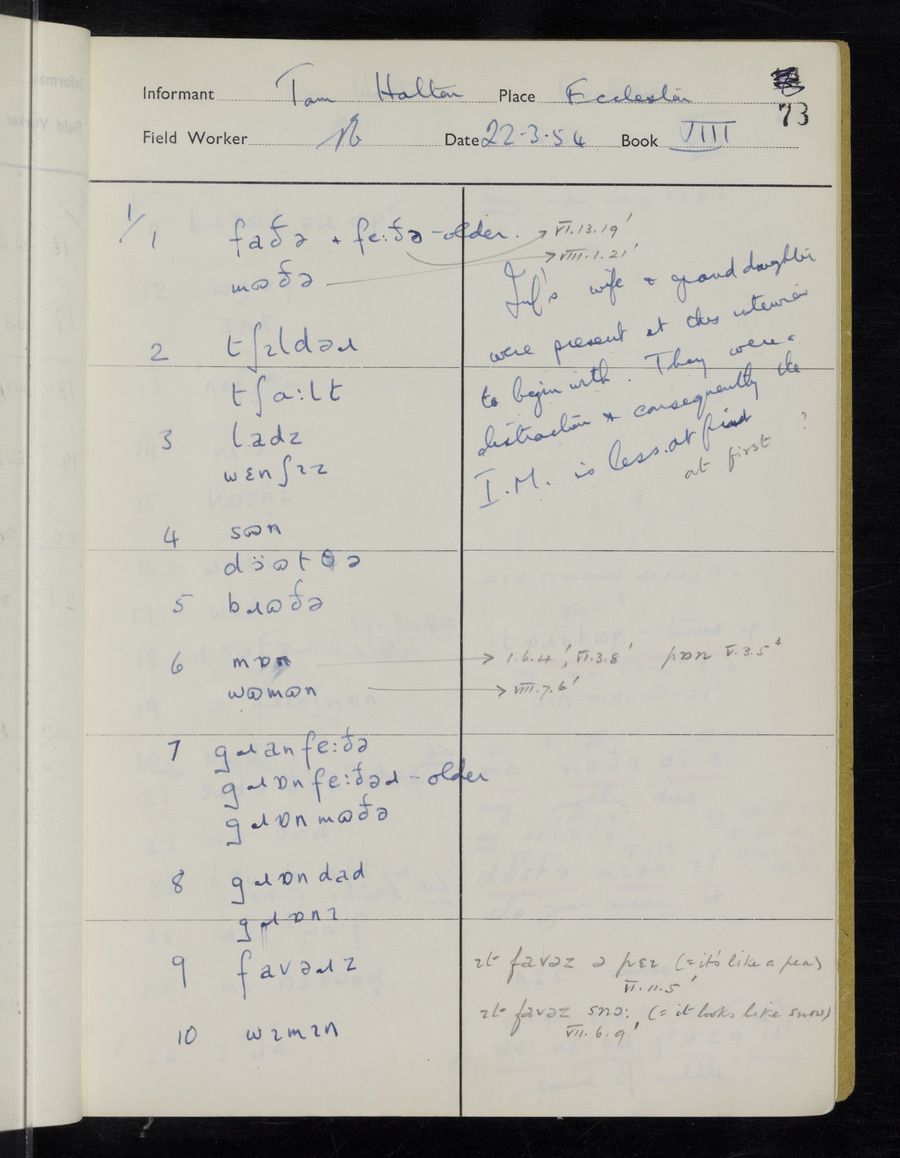 Informant Tom Halton Place Eccleston
73
Field Worker Date 22-3-54 Book VIII
1/
1 faðə + fe:ðə - older. → VI.13.19'
mɷðə → VIII.1.21'
Inf's wife & granddaughter
were present at this interview
to begin with. They were a
distraction & consequently the
I.M. is less at first
at first ?
2 tʃɪldəɹ
tʃɑ:lt
3 ladz
wɛnʃɪz
4 sɷn
dɔ̈ɷtθə
5 bɹɷðə
6 mɒn → I.6.4', VI.3.8' pɒn V.3.5³
wɷmɷn → VIII.7.6'
7 gɹanfe:ðə
gɹɒnfe:ðəɹ - older
gɹɒnmɷðə
8 gɹɒndad
gɹɒnɪ
9 favəɹz
ɪt favəz ə pɛɪ (= it's like a pea)
VI.11.5'
ɪt favəz snɔ: (= it looks like snow)
VII.6.9'
10 wɪmɪn